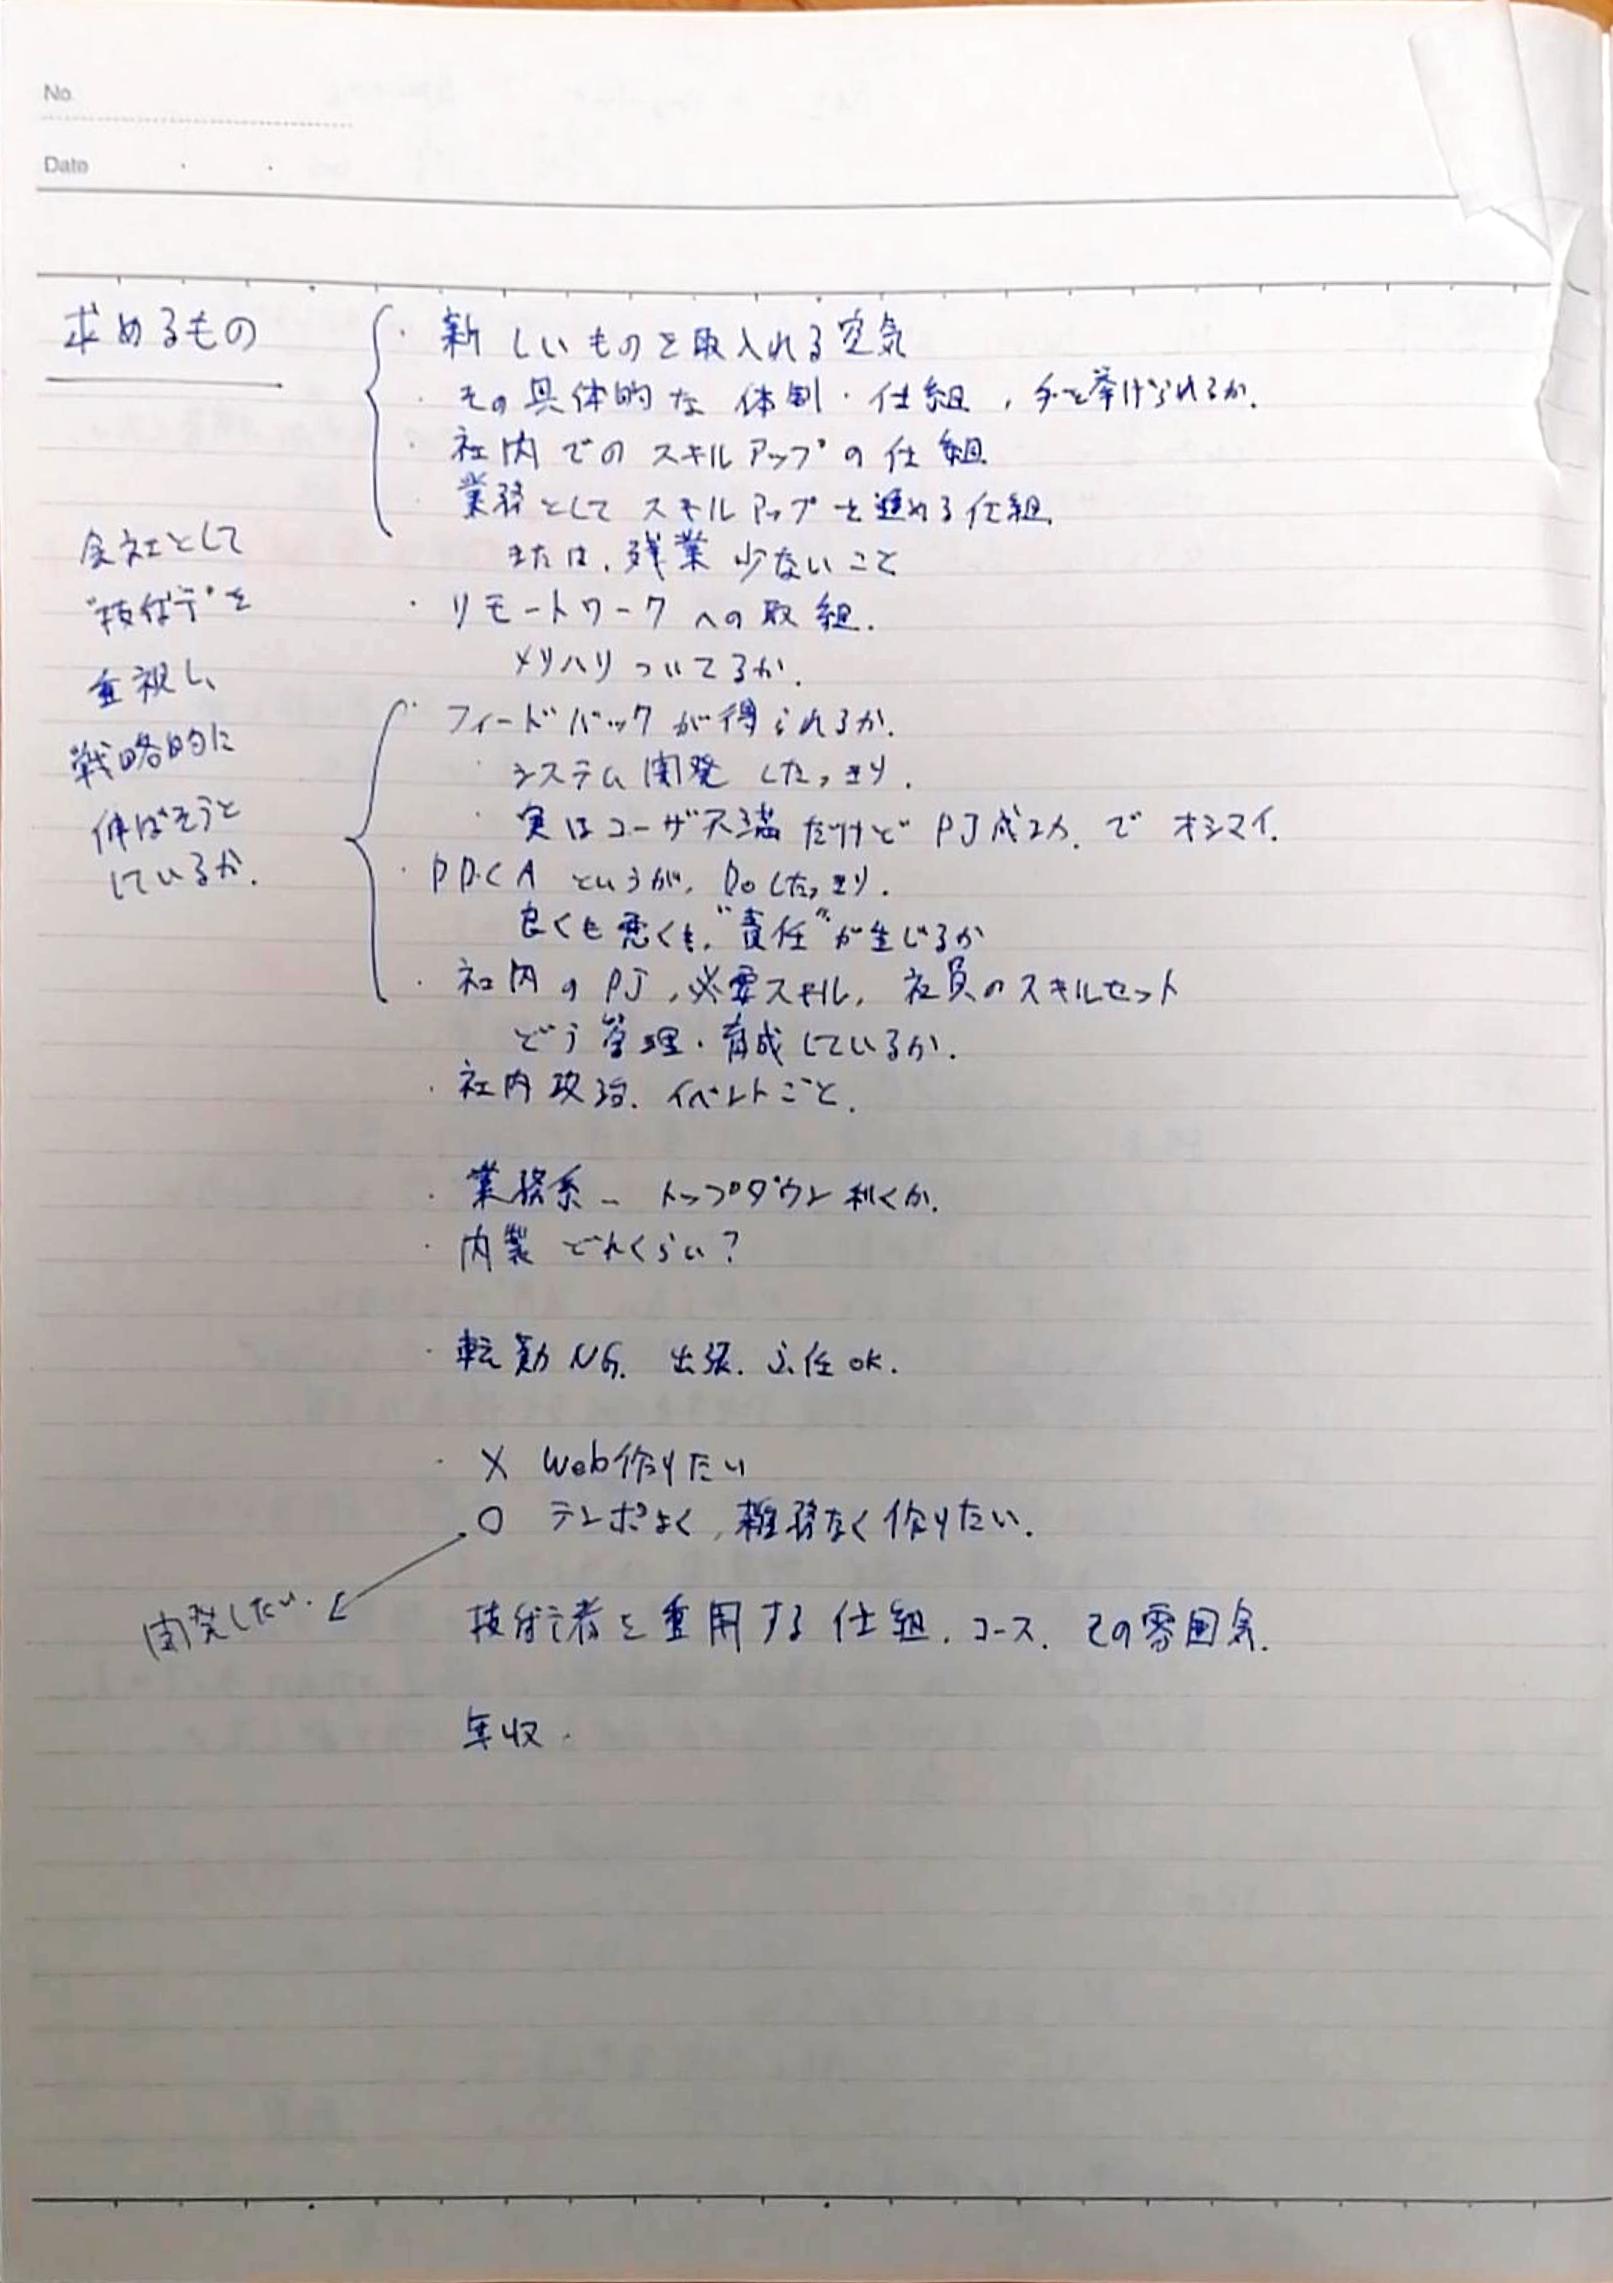 No.
Date
求めるもの
・新しいものを取入れる空気
・その具体的な体制・仕組、手を挙げられるか.
・社内でのスキルアップの仕組
・業務としてスキルアップを進める仕組.
または、残業少ないこと
・リモートワークへの取組.
メリハリついてるか.
会社として
"技術"を
重視し、
戦略的に
伸ばそうと
しているか.
・フィードバックが得られるか.
・システム開発したっきり.
・実はユーザ不満だけどPJ成功.でオシマイ.
・PDCAというが、Doしたっきり.
良くも悪くも、"責任"が生じるか
・社内のPJ、必要スキル、社員のスキルセット
どう管理・育成しているか.
・社内政治.イベントごと.
・業務系 - トップダウン利くか.
・内製どれくらい?
・転勤NG. 出張. 赴任OK.
・× Web作りたい
○ テンポよく、雑務なく作りたい.
開発したい.
技術者を重用する仕組.コース.その雰囲気.
年収.